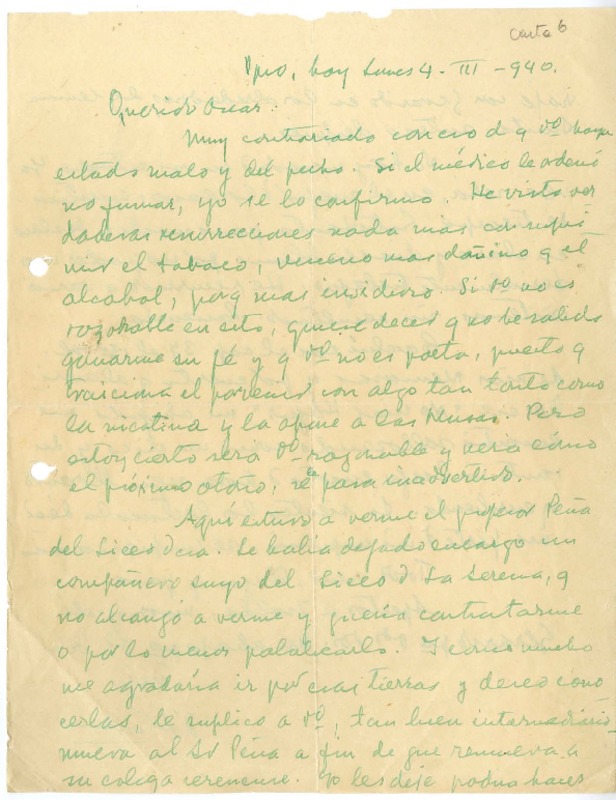 carta 6
Vpso, hoy Lunes 4 - III - 940.
Querido Oscar:
Muy contrariado con eso d q Vd haya
estado malo y del pecho. Si el médico le ordenó
no fumar, yo se lo confirmo. He visto ver
daderas resurrecciones nada mas con supri
mir el tabaco, veneno mas dañino q el
alcohol, porq mas insidioso. Si Vd no es
razonable en esto, quiere decir q no he sabido
ganarme su fé y q Vd no es poeta, puesto q
traiciona el porvenir con algo tan tonto como
la nicotina y la opone a las Musas. Pero
estoy cierto será Vd razonable y verá cómo
el próximo otoño, se le pasa inadvertido.
Aquí estuvo a verme el profesor Peña
del Liceo d esa. Le había dejado encargo un
compañero suyo del Liceo d La Serena, q
no alcanzó a verme y quería contratarme
o por lo menos palabrearlo. Y como mucho
me agradaría ir por esas tierras y deseo cono
cerlas, le suplico a Vd, tan buen intermediario
mueva al Sr Peña a fin de que remueva a
su colega serenense. Yo les dejé podría hacer